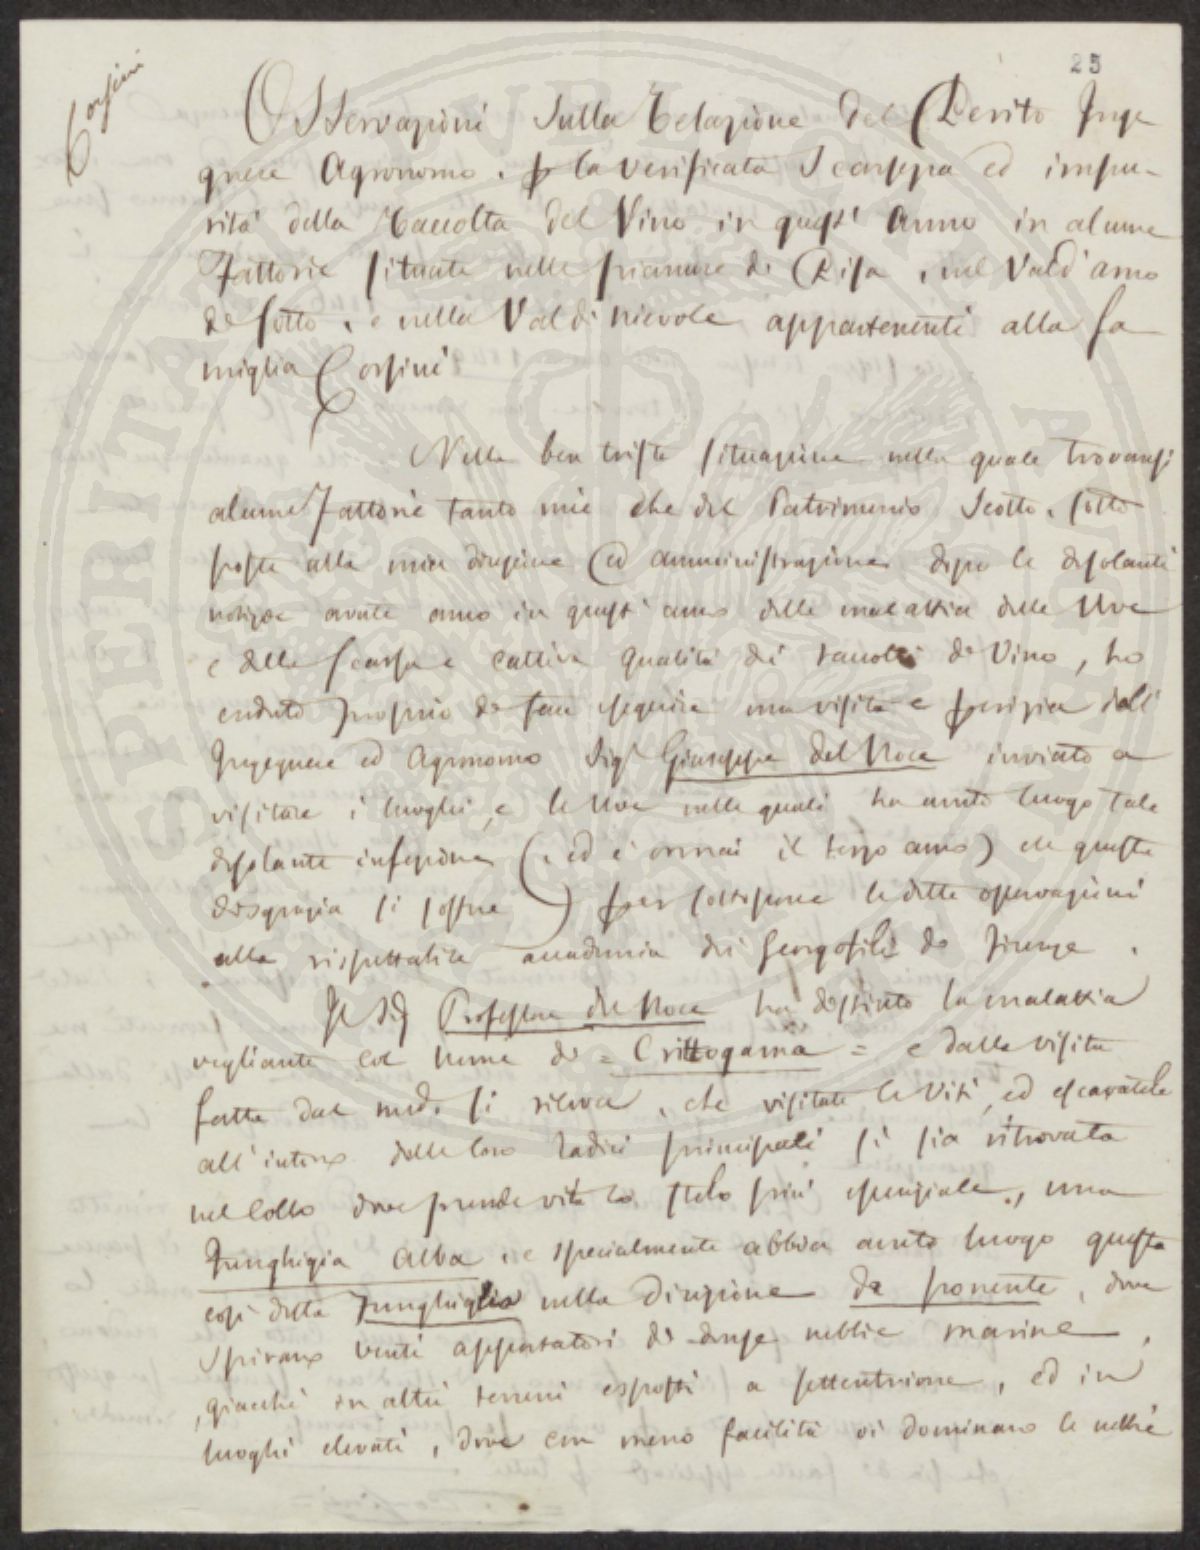 25
Corsini
Osservazioni Sulla Relazione del Perito Inge
gnere Agronomo, p la verificata Scarsezza ed impu-
rità della Raccolta del Vino in quest' Anno in alcune
Fattorie situate nelle pianure di Pisa, nel Vald'arno
di sotto, e nella Valdinievole appartenenti alla fa
miglia Corsini
Nella ben trista situazione nella quale trovansi
alcune Fattorie tanto mie che del Patrimonio Scotto, sotto
poste alla mia direzione ed amministrazione dopo le desolanti
notizie avute anco in quest' anno della malattia delle Uve
e della scarsa e cattiva qualità dei raccolti di Vino, ho
creduto proprio di fare eseguire una visita e perizia dall'
Ingegnere ed Agronomo Sigr Giuseppe del Noce inviato a
visitare i luoghi, e le Uve nelle quali ha avuto luogo tale
desolante infezione (, ed è ormai il terzo anno) che questa
disgrazia si soffre ) per sottoporre le dette osservazioni
alla rispettabile accademia dei Georgofili di Firenze.
Il Sig Professore del Noce ha distinto la malattia
vegliante col nome di = Crittogamia = e dalla visita
fatta dal med. si rileva, che visitate le Viti, ed escavatele
all'intorno delle loro radici principali si sia ritrovata
nel Collo dove prende vita lo stelo più essenziale, una
Funghigia alba, e specialmente abbia avuto luogo questa
così detta Funghiglia nella direzione di ponente, dove
spirano venti apportatori di dense nebbie marine,
, giacchè in altri terreni esposti a settentrione, ed in
luoghi elevati, dove con meno facilità vi dominano le nebbie